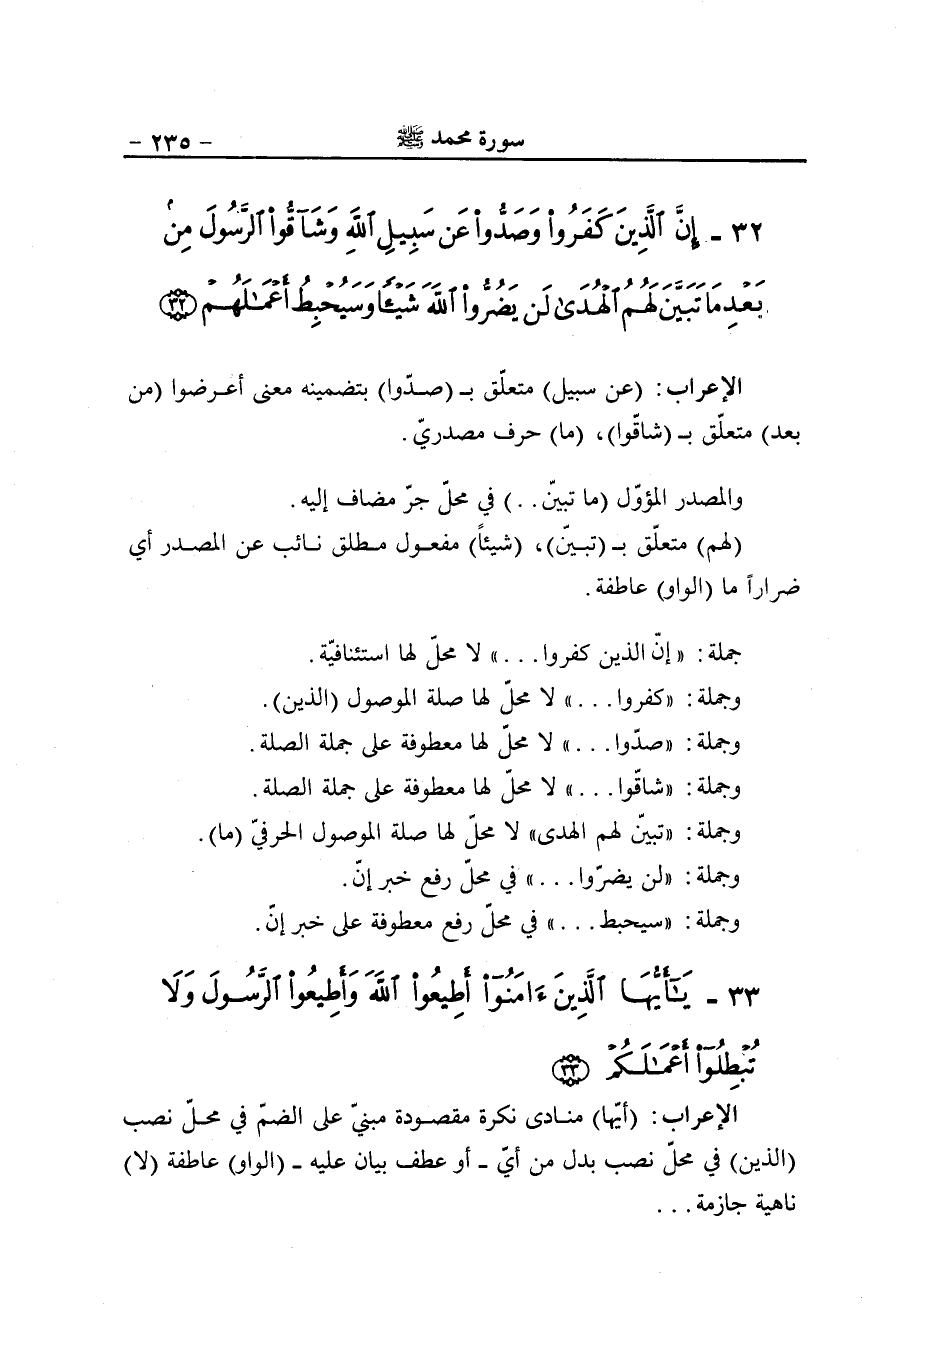 سورة محمد ﷺ - ٢٣٥ -
٣٢ - إِنَّ ٱلَّذِينَ كَفَرُوا۟ وَصَدُّوا۟ عَن سَبِيلِ ٱللَّهِ وَشَآقُّوا۟ ٱلرَّسُولَ مِنۢ
بَعْدِ مَا تَبَيَّنَ لَهُمُ ٱلْهُدَىٰ لَن يَضُرُّوا۟ ٱللَّهَ شَيْـًٔا وَسَيُحْبِطُ أَعْمَـٰلَهُمْ (٣٢)
الإعراب: (عن سبيل) متعلّق بـ (صدّوا) بتضمينه معنى أعرضوا (من
بعد) متعلّق بـ (شاقّوا)، (ما) حرف مصدريّ.
والمصدر المؤوّل (ما تبيّن..) في محلّ جرّ مضاف إليه.
(لهم) متعلّق بـ (تبيّن)، (شيئاً) مفعول مطلق نائب عن المصدر أي
ضراراً ما (الواو) عاطفة.
جملة: «إنّ الذين كفروا...» لا محلّ لها استئنافيّة.
وجملة: «كفروا...» لا محلّ لها صلة الموصول (الذين).
وجملة: «صدّوا...» لا محلّ لها معطوفة على جملة الصلة.
وجملة: «شاقّوا...» لا محلّ لها معطوفة على جملة الصلة.
وجملة: «تبيّن لهم الهدى» لا محلّ لها صلة الموصول الحرفيّ (ما).
وجملة: «لن يضرّوا...» في محلّ رفع خبر إنّ.
وجملة: «سيحبط...» في محلّ رفع معطوفة على خبر إنّ.
٣٣ - يَـٰٓأَيُّهَا ٱلَّذِينَ ءَامَنُوٓا۟ أَطِيعُوا۟ ٱللَّهَ وَأَطِيعُوا۟ ٱلرَّسُولَ وَلَا
تُبْطِلُوٓا۟ أَعْمَـٰلَكُمْ (٣٣)
الإعراب: (أيّها) منادى نكرة مقصودة مبنيّ على الضمّ في محلّ نصب
(الذين) في محلّ نصب بدل من أيّ - أو عطف بيان عليه - (الواو) عاطفة (لا)
ناهية جازمة...